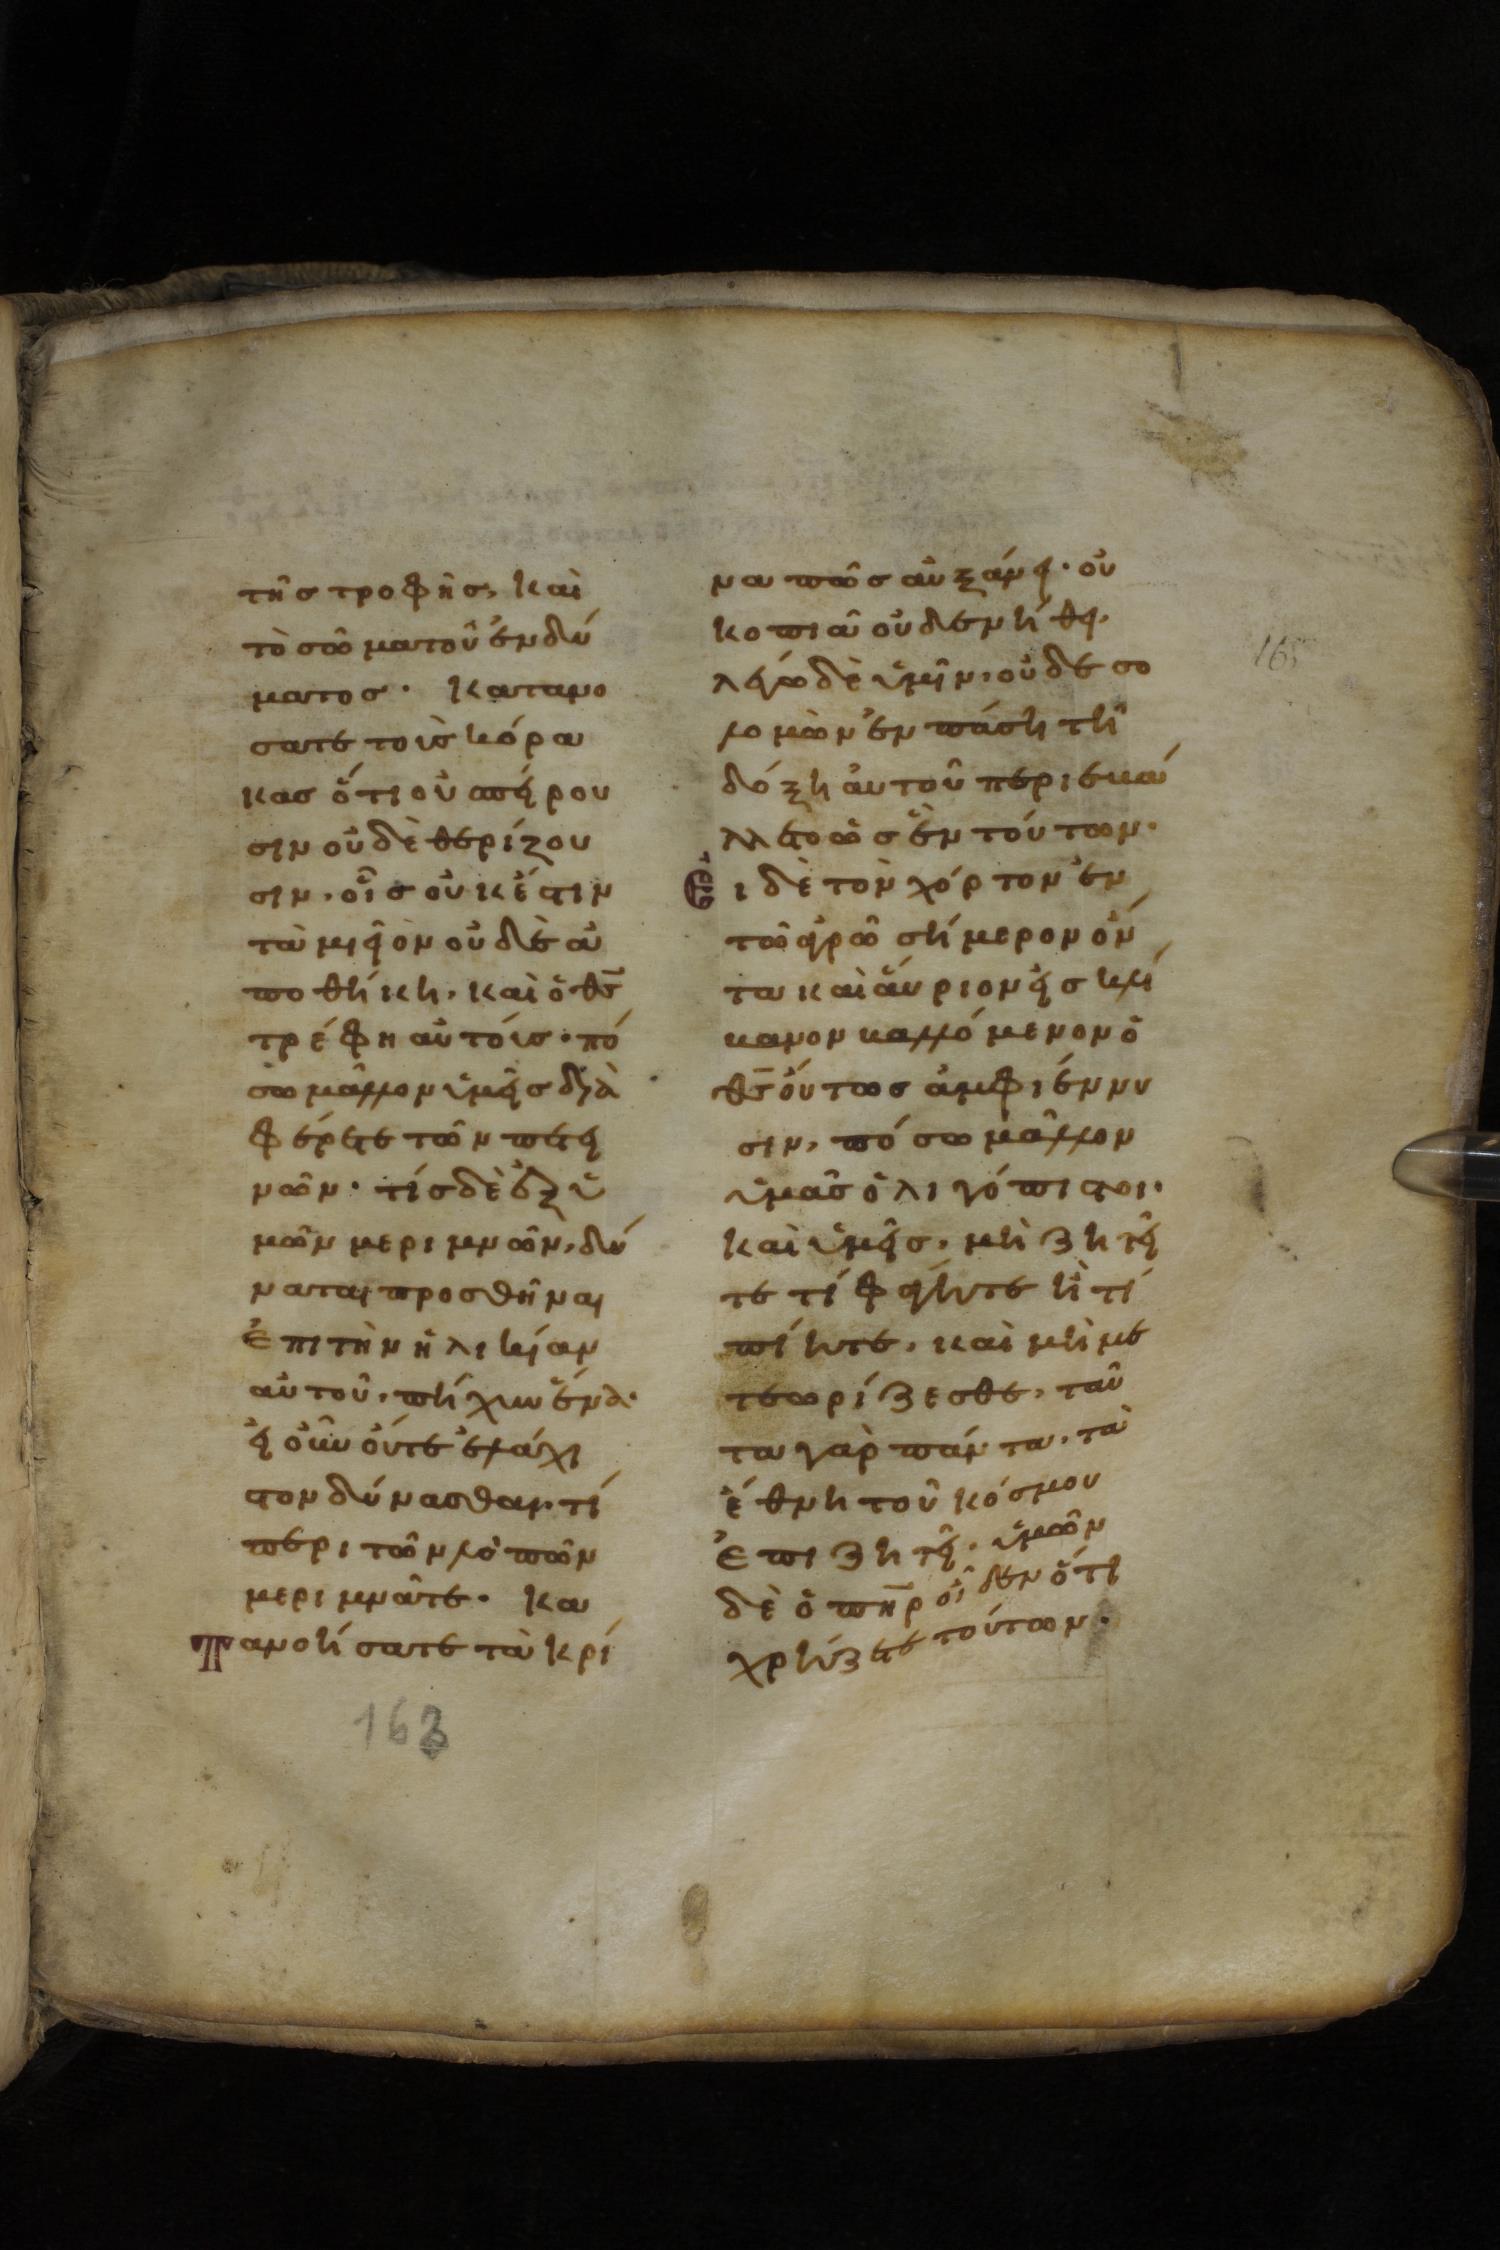 τῆσ τροφῆσ, καὶ
τὸ σῶμα τοῦ ἐνδύ
ματοσ· Κατανο
σατε τοὺς κόρα
κασ ὅτι οὐ σπείρου
σιν οὐδὲ θερίζου
σιν, οἷσ οὐκ ἔστιν
ταμιεῖον οὐδὲ ἀ
ποθήκη, καὶ ὁ θ̅ς̅
τρέφει αὐτούς· πό
σω μᾶλλον ὑμεῖσ δϊὰ
φέρετε τῶν πετει
νῶν· τίσ δὲ ἐξ ὑ
μῶν μεριμνῶν, δύ
ναται προσθῆναι
ἐπι τὴν ἡλικίαν
αὐτοῦ, πῆχυν ἕνα·
εἰ οὖν οὔτε ἐλάχι
στον δύνασθαι, τί
περι τῶν λοιπῶν
μεριμνᾶτε· Κα
τανοήσατε τὰ κρί
να πῶσ αὐξάνει· οὐ
κοπιᾶ οὐδε νήθει,
λέγω δὲ ὑμῖν, οὐδε σο
λομὼν ἐν πάση τῆ
δόξη ἀυτοῦ περιεβά
λλετο ὡσ ἓν τούτων·
Εἰ δὲ τὸν χόρτον ἐν
τῶ ἀγρῶ σήμερον ὄν
τα καὶ ἄυριον εἰσ κλί
βανον βαλλόμενον ὁ
θ̅ς̅ ὅυτωσ ἀμφιέννυ
σιν, πόσω μᾶλλον
ὑμᾶσ ὀλιγόπιστοι·
καὶ ὑμεῖσ, μὴ ζητεῖ
τε τί φάγητε ἢ τί
πίητε, καὶ μὴ με
τεωρίζεσθε, ταῦ
τα γὰρ πάντα, τὰ
ἔθνη τοῦ κόσμου
ἐπιζητεῖ, ὑμῶν
δὲ ὁ π̅η̅ρ̅ οἶδεν ὅτι
χρήζετε τούτων·
165
163